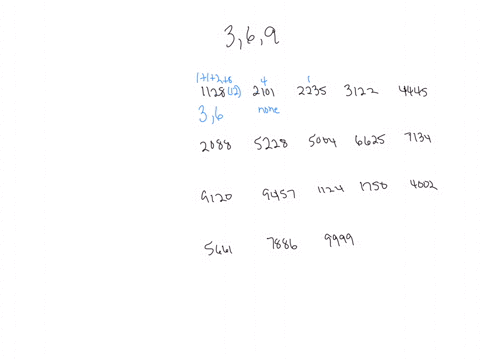 3,6,9
1+1+2+8 4 1
1128 (12) 2101 2235 3122 4445
3,6 none
2088 5228 5004 6625 7134
9120 9457 1124 1750 4002
5661 7886 9999